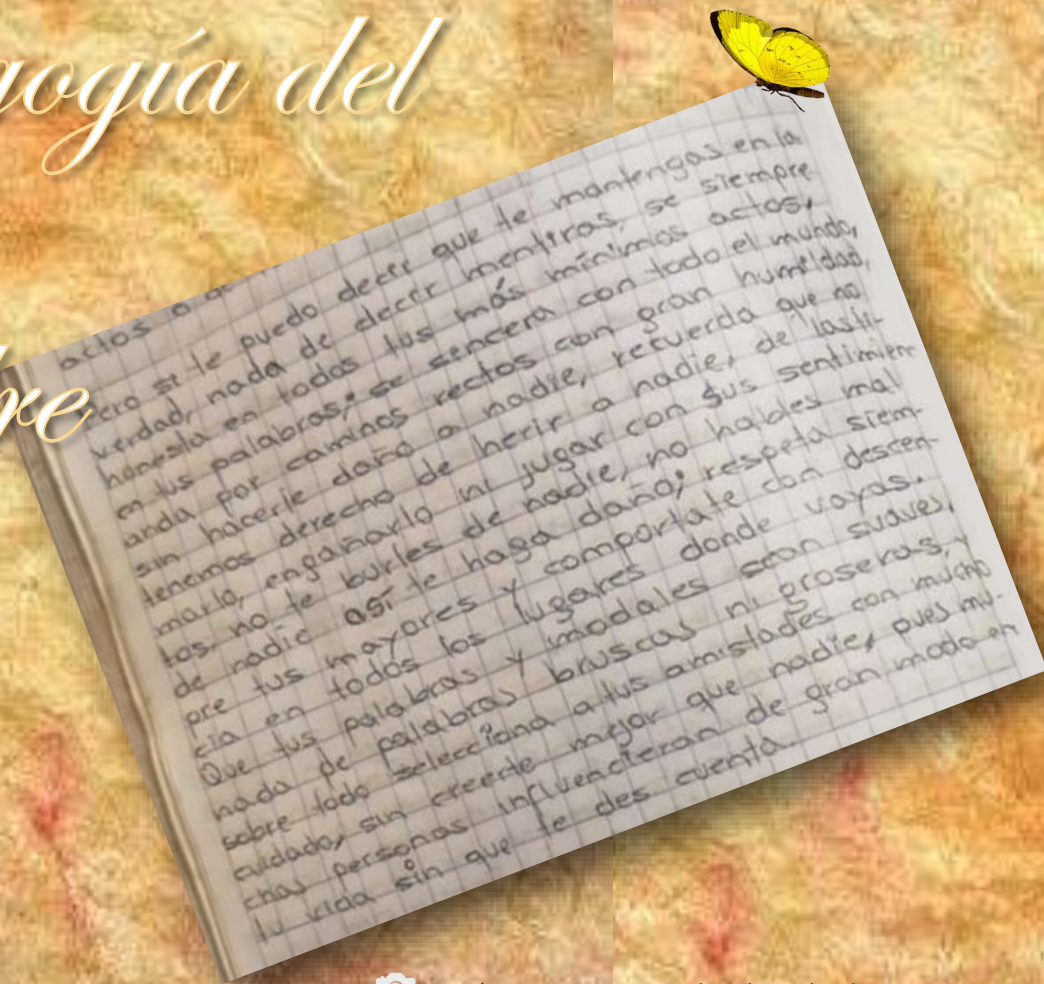 gogía del
re
actos o a
Pero si te puedo decir que te mantengas en la
verdad, nada de decir mentiras, se siempre
honesta en todos tus más mínimos actos,
en tus palabras, se sencera con todo el mundo,
anda por caminos rectos con gran humildad,
sin hacerle daño a nadie, recuerda que no
tenemos derecho de herir a nadie, de lasti-
marlo, engañarlo ni jugar con sus sentimien
tos, no te burles de nadie, no hables mal
de nadie así te haga daño, respeta siem-
pre tus mayores y comportate con descen-
cia en todos los lugares donde vayas.
Que tus palabras y modales sean suaves,
nada de palabras bruscas ni groseras, y
sobre todo selecciona a tus amistades con mucho
cuidado, sin creerte mejor que nadie, pues mu-
chas personas influencieran de gran modo en
tu vida sin que te des cuenta.